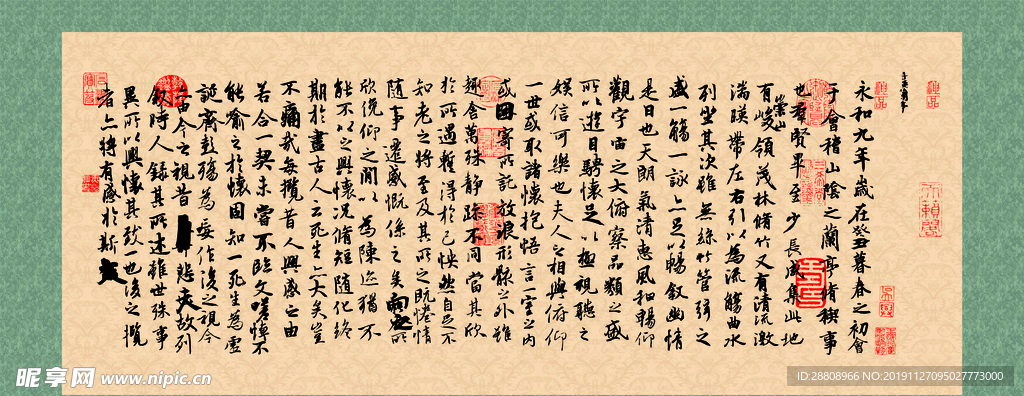 永和九年歲在癸丑暮春之初會
于會稽山陰之蘭亭脩稧事
也羣賢畢至少長咸集此地
有崇山峻領茂林脩竹又有清流激
湍暎帶左右引以為流觴曲水
列坐其次雖無絲竹管弦之
盛一觴一詠亦足以暢叙幽情
是日也天朗氣清惠風和暢仰
觀宇宙之大俯察品類之盛
所以遊目騁懷足以極視聽之
娛信可樂也夫人之相與俯仰
一世或取諸懷抱悟言一室之內
或因寄所託放浪形骸之外雖
趣舍萬殊靜躁不同當其欣
於所遇暫得於己怏然自足不
知老之將至及其所之既惓情
隨事遷感慨係之矣向之所
欣俛仰之閒以為陳迹猶不
能不以之興懷況脩短隨化終
期於盡古人云死生亦大矣豈
不痛哉每攬昔人興感之由
若合一契未嘗不臨文嗟悼不
能喻之於懷固知一死生為虛
誕齊彭殤為妄作後之視今
亦由今之視昔悲夫故列
叙時人錄其所述雖世殊事
異所以興懷其致一也後之攬
者亦將有感於斯文
昵享网 www.nipic.cn
ID:28808966 NO:20191127095027773000